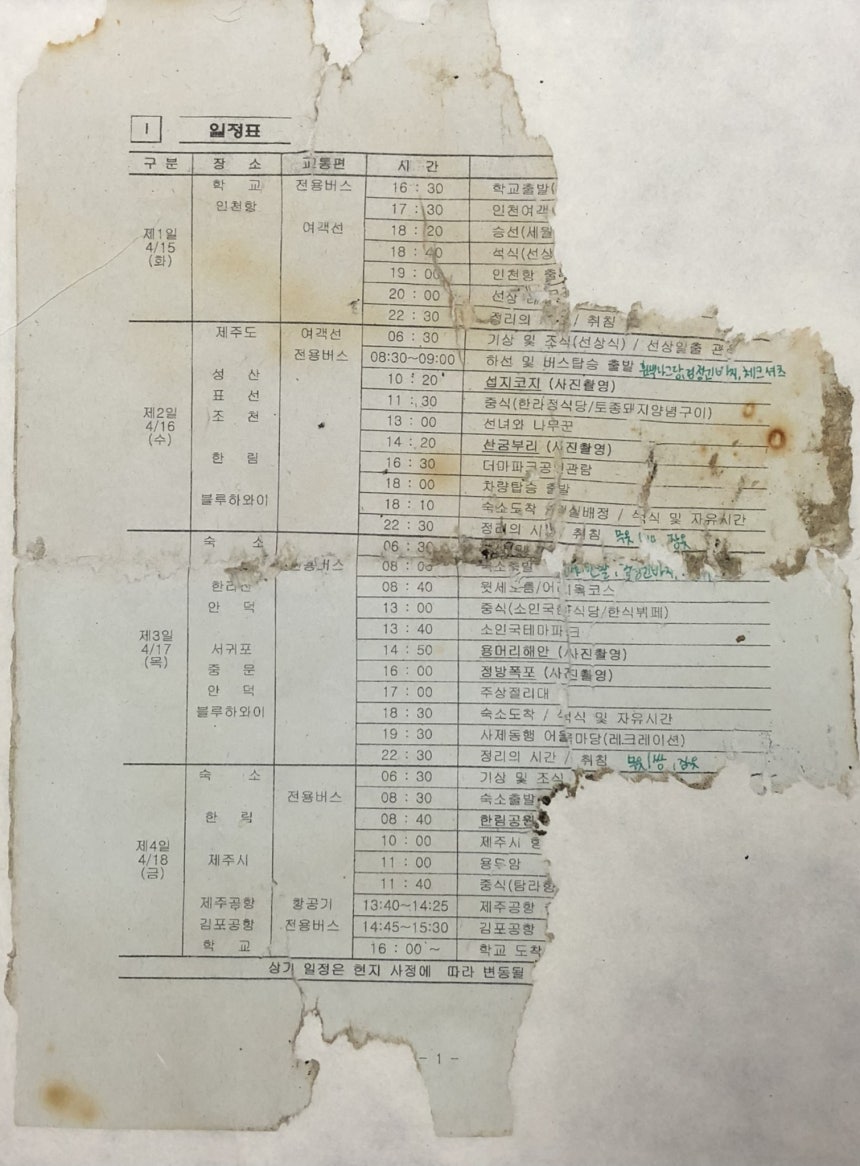 I 일정표
구 분 장 소 교통편 시 간
제1일 4/15 (화) 학 교 전용버스 16 : 30 학교출발(
인천항 17 : 30 인천여객
여객선 18 : 20 승선(세월
18 : 40 석식(선상
19 : 00 인천항 출
20 : 00 선상
22 : 30 정리의 / 취침
제2일 4/16 (수) 제주도 여객선 06 : 30 기상 및 조식(선상식) / 선상일출 관
전용버스 08:30~09:00 하선 및 버스탑승 출발
성 산 10 : 20 섭지코지 (사진촬영)
표 선 11 : 30 중식(한라정식당/토종돼지양념구이)
조 천 13 : 00 선녀와 나무꾼
14 : 20 산굼부리 (사진촬영)
한 림 16 : 30 더마파크공연관람
18 : 00 차량탑승 출발
블루하와이 18 : 10 숙소도착 / 실배정 / 석식 및 자유시간
22 : 30 정리의 시간 / 취침
제3일 4/17 (목) 숙 소 06 : 30
전용버스 08 : 00 숙소출발
한라산 08 : 40 윗세오름/어리목코스
안 덕 13 : 00 중식(소인국 식당/한식뷔페)
13 : 40 소인국테마파크
서귀포 14 : 50 용머리해안 (사진촬영)
중 문 16 : 00 정방폭포 (사진촬영)
안 덕 17 : 00 주상절리대
블루하와이 18 : 30 숙소도착 / 석식 및 자유시간
19 : 30 사제동행 어울마당(레크레이션)
22 : 30 정리의 시간 / 취침
제4일 4/18 (금) 숙 소 06 : 30 기상 및 조식
전용버스 08 : 30 숙소출발
한 림 08 : 40 한림공원
10 : 00 제주시 향
제주시 11 : 00 용두암
11 : 40 중식(탐라
제주공항 항공기 13:40~14:25 제주공항
김포공항 전용버스 14:45~15:30 김포공항
학 교 16 : 00 ~ 학교 도착
상기 일정은 현지 사정에 따라 변동될
- 1 -